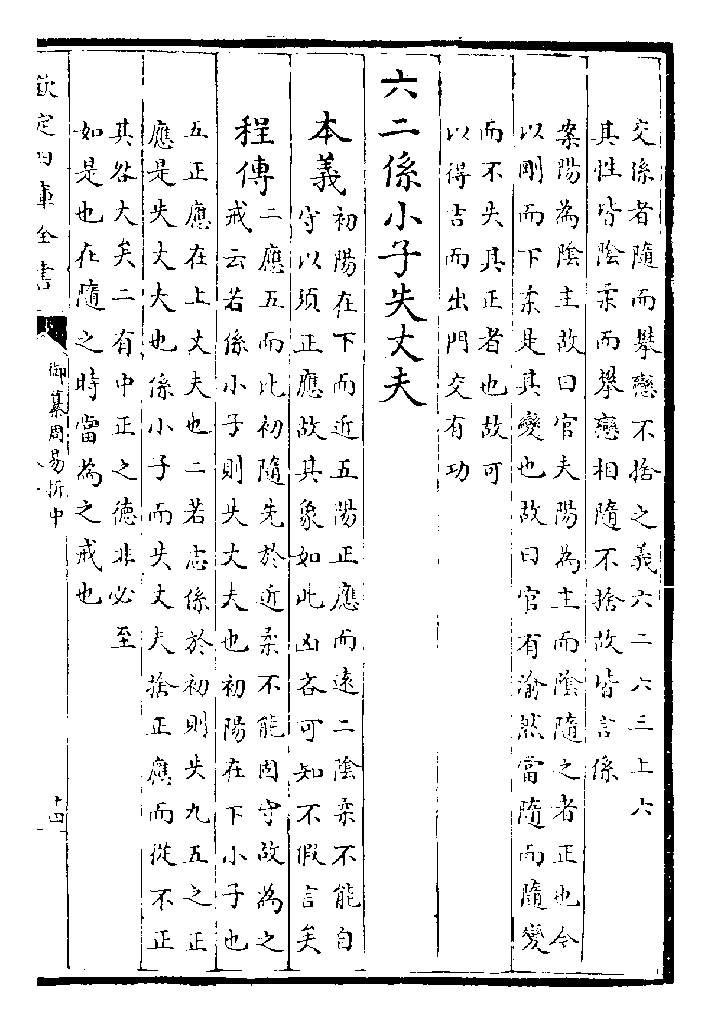 交係者隨而攀戀不捨之義六二六三上六
其性皆陰柔而攀戀相隨不捨故皆言係
案陽為陰主故曰官夫陽為主而陰隨之者正也今
以剛而下柔是其變也故曰官有渝然當隨而隨變
而不失其正者也故可
以得吉而出門交有功
六二係小子失丈夫
本義
初陽在下而近五陽正應而遠二陰柔不能自
守以須正應故其象如此凶吝可知不假言矣
程傳
二應五而比初隨先於近柔不能固守故為之
戒云若係小子則失丈夫也初陽在下小子也
五正應在上丈夫也二若志係於初則失九五之正
應是失丈夫也係小子而失丈夫捨正應而從不正
其咎大矣二有中正之德非必至
如是也在隨之時當為之戒也
欽定四庫全書
御纂周易折中
十四